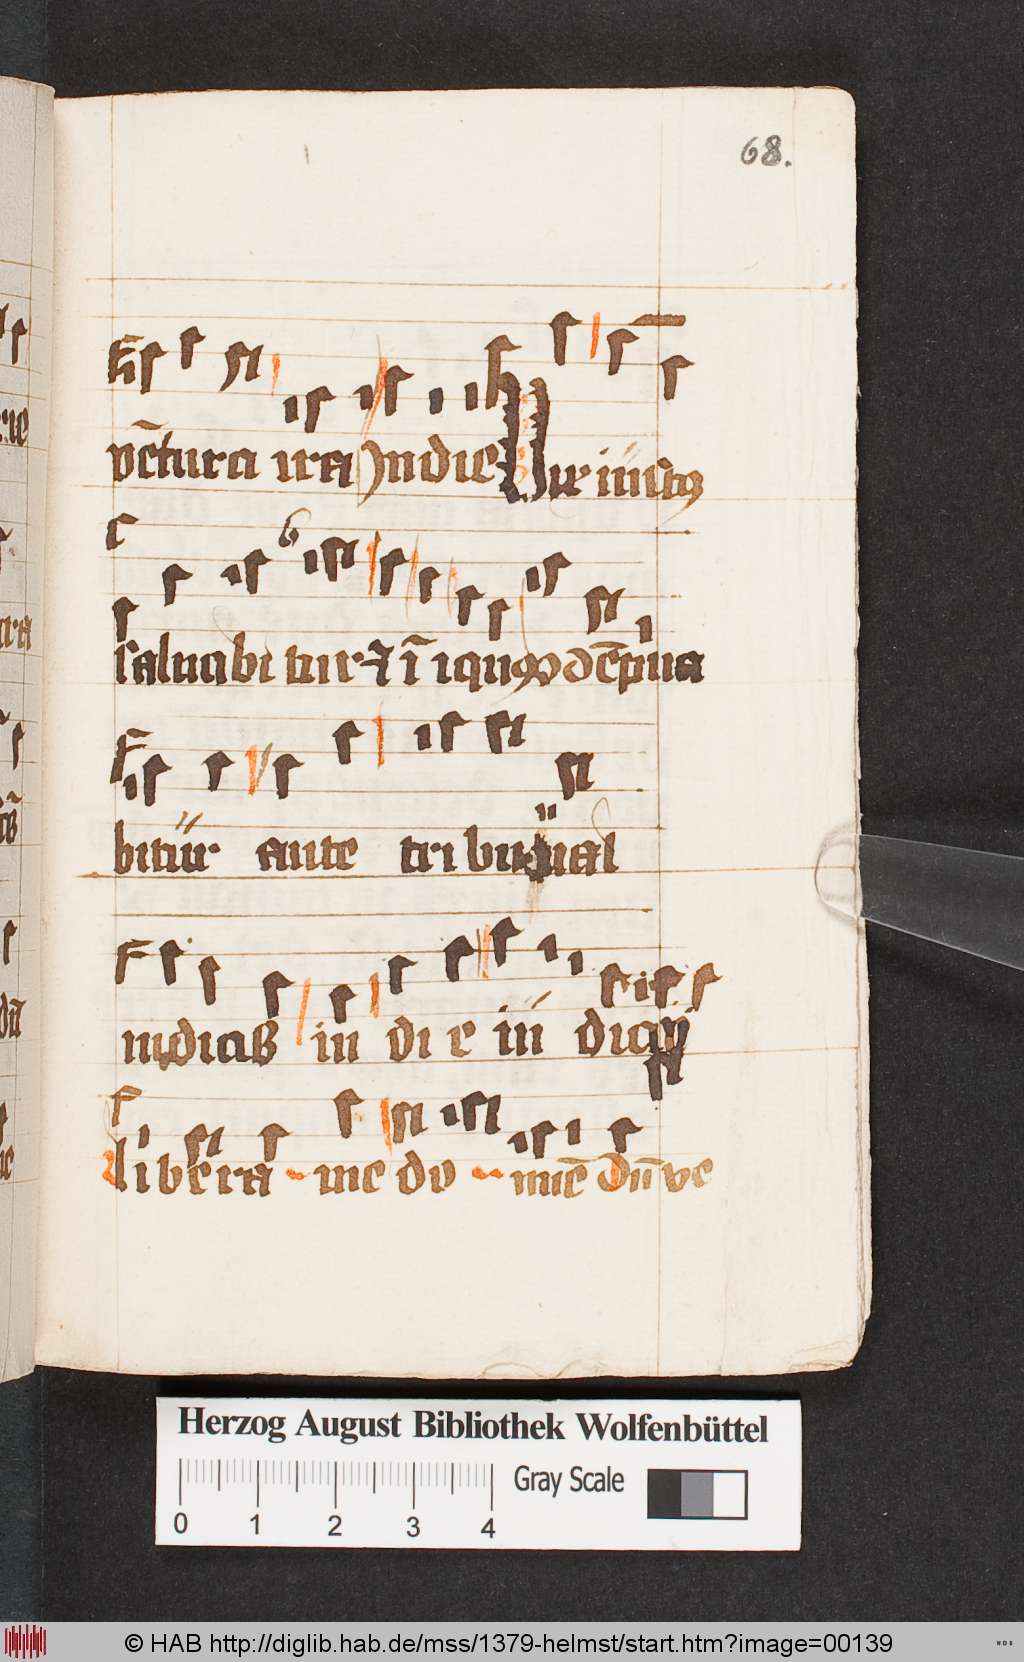 68.
vētura ira In die Vix iustus
salua bi tur et ī iquos dēpua
bitur ante tribunal
iudicis in di e in dicii
libera me do mie dū ve
Herzog August Bibliothek Wolfenbüttel
Gray Scale
0 1 2 3 4
© HAB http://diglib.hab.de/mss/1379-helmst/start.htm?image=00139